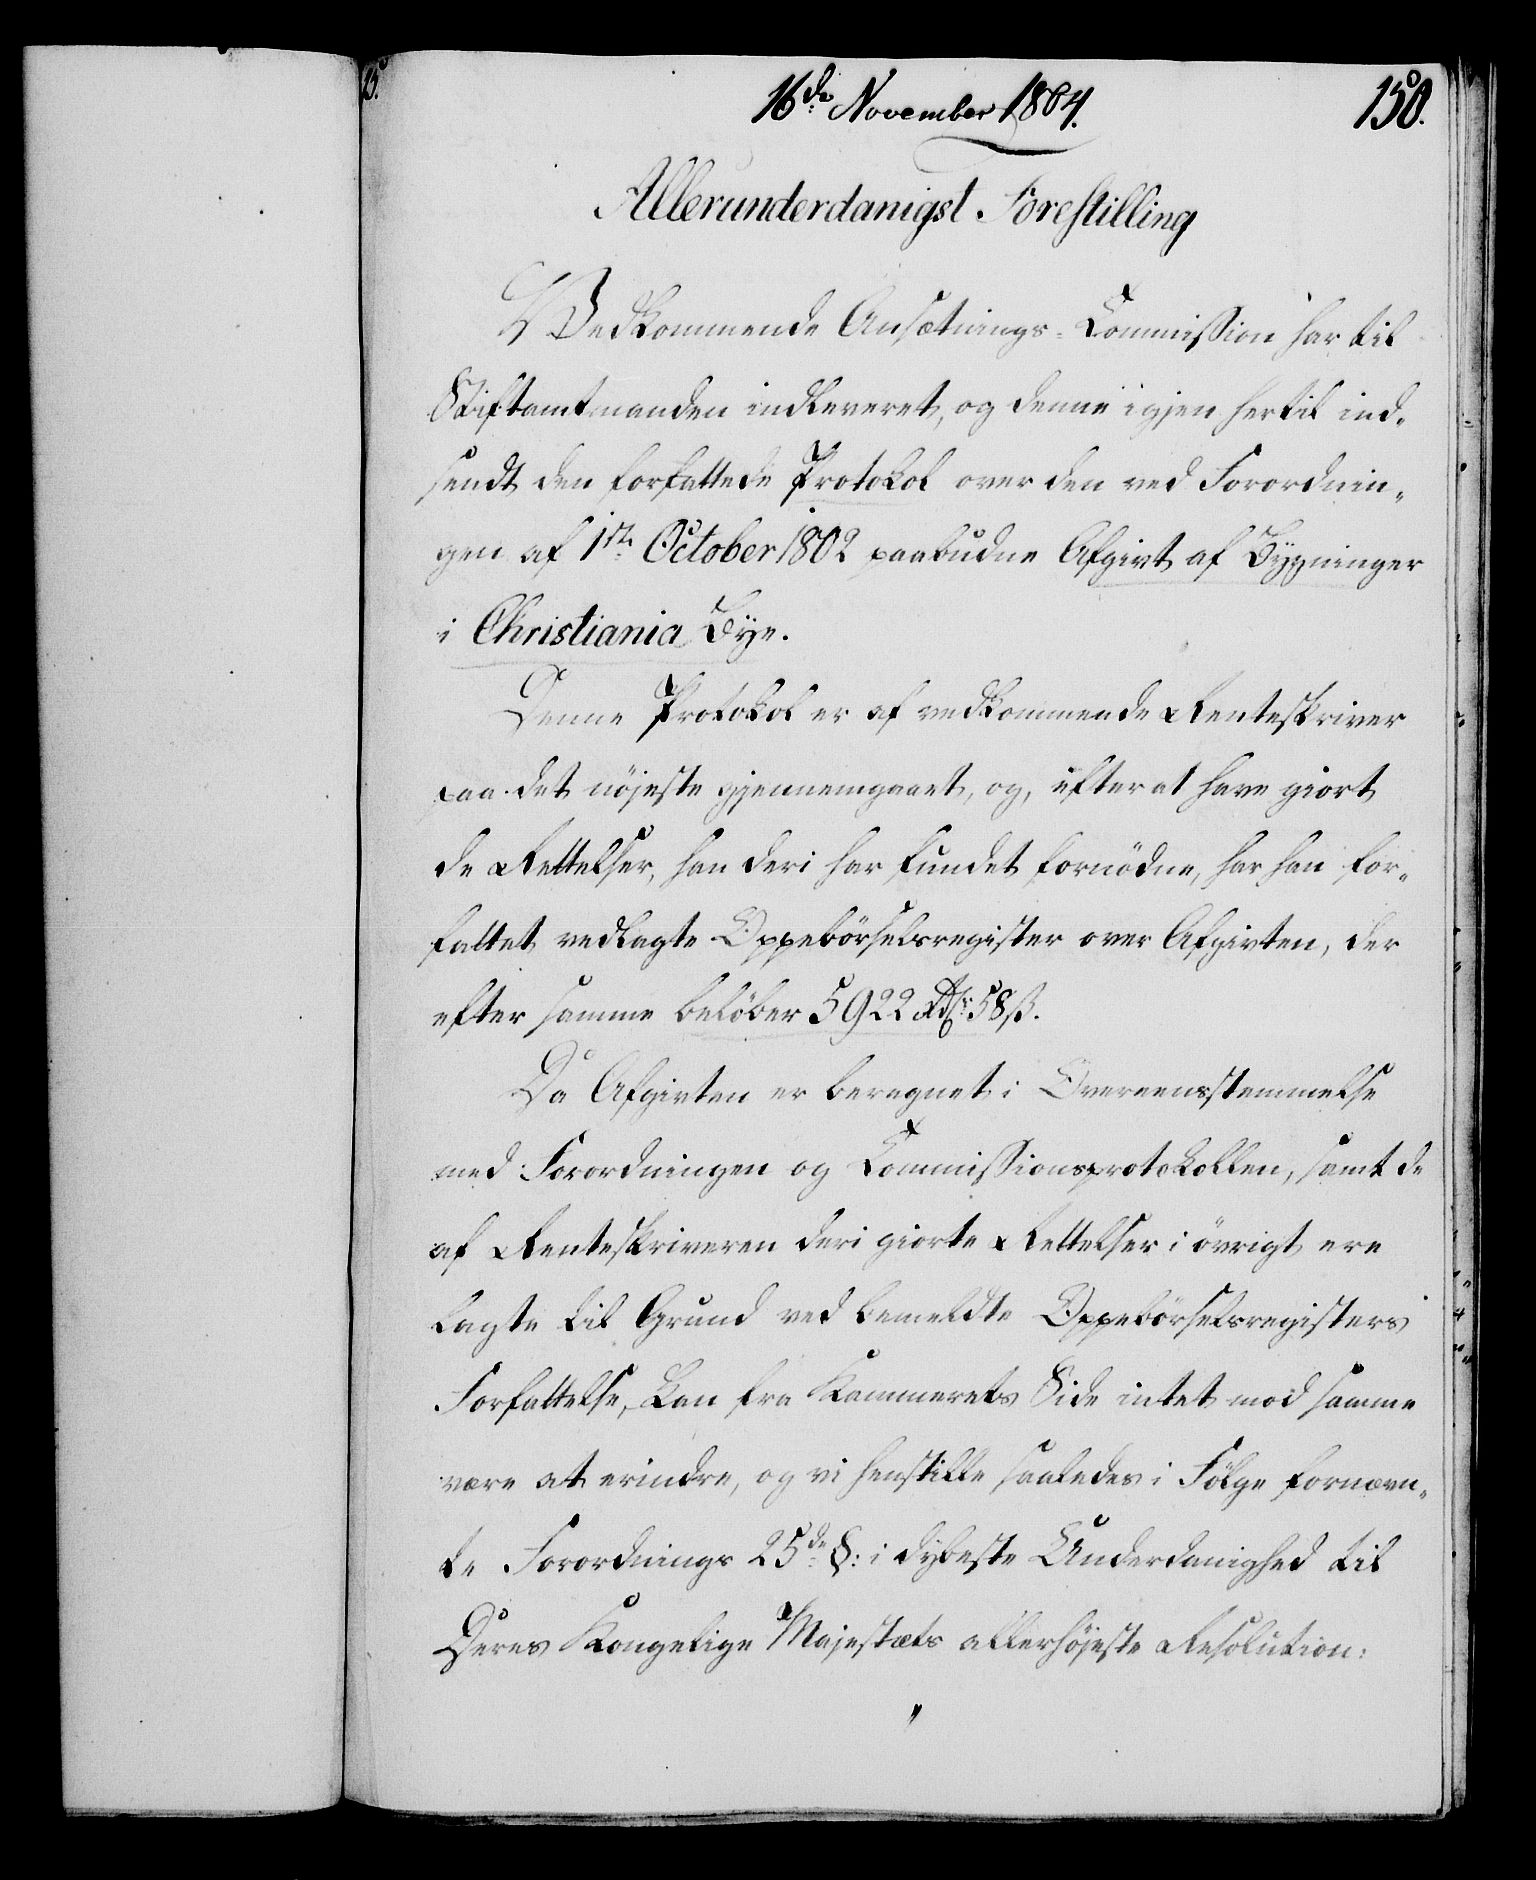 16de November 1804.
150.
Allerunderdanigst Forestilling
Vedkommende Ansætnings-Commission har til
Stiftamtmanden indleveret, og denne igjen hertil ind-
sendt den forfattede Protokol over den ved Forordnin-
gen af 1ste October 1802 paabudne Afgivt af Bygninger
i Christiania Bye.
Denne Protokol er af vedkommende Renteskriver
paa det nöjeste gjennemgaaet, og, efter at have giort
de Rettelser, han deri har fundet fornödne, har han for-
fattet vedlagte Oppebörselsregister over Afgivten, der
efter samme belöber 5922 Rdlr 58 ß.
Da Afgivten er beregnet i Overeensstemmelse
med Forordningen og Commissionsprotokollen, samt de
af Renteskriveren deri giorte Rettelser i övrigt ere
lagte til Grund ved bemeldte Oppebörselsregisters
Forfattelse, kan fra Kammerets Side intet mod samme
være at erindre, og vi henstille saaledes i Fölge fornævn-
te Forordnings 25de §: i dybeste Underdanighed til
Deres Kongelige Majestæts allerhöjeste Resolution:
"